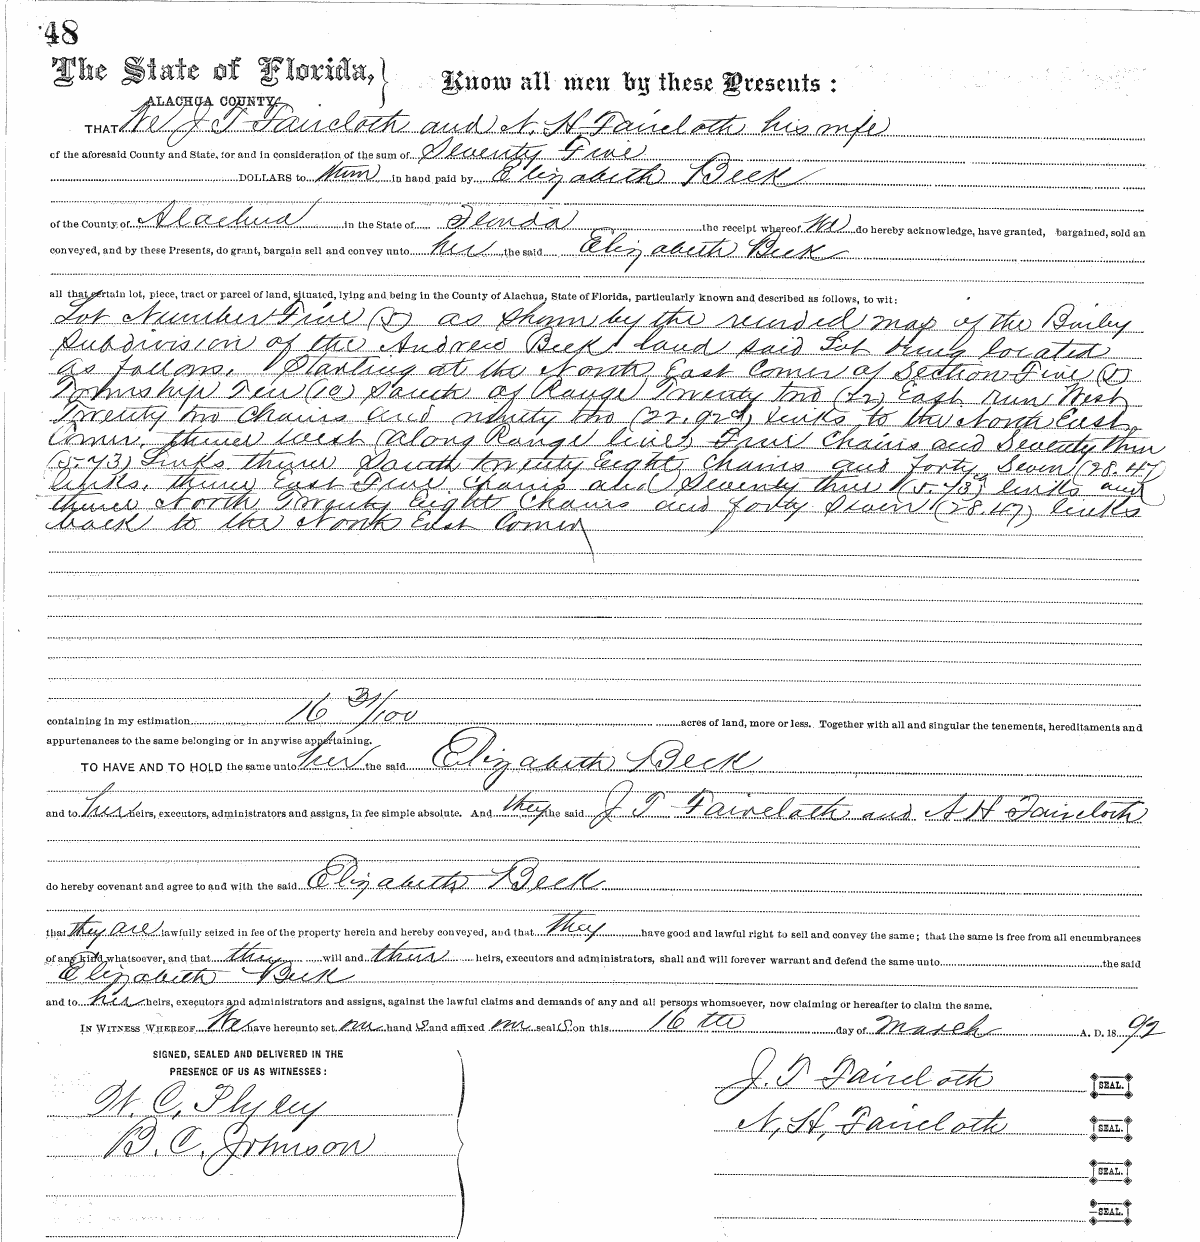 48
The State of Florida, } Know all men by these Presents :
ALACHUA COUNTY
THAT We J T Faircloth and N. H Faircloth his wife
of the aforesaid County and State, for and in consideration of the sum of Seventy Five
DOLLARS to them in hand paid by Elizabeth Beck
of the County of Alachua in the State of Florida the receipt whereof We do hereby acknowledge, have granted, bargained, sold an
conveyed, and by these Presents, do grant, bargain sell and convey unto her the said Elizabeth Beck
all that certain lot, piece, tract or parcel of land, situated, lying and being in the County of Alachua, State of Florida, particularly known and described as follows, to wit:
Lot Number Five (5) as shown by the recorded map of the Bailey
Subdivision of the Andrew Beck land said Lot being located
as follows. Starting at the North East Corner of Section Five (5)
Township Ten (10) South of Range Twenty two (22) East run West
Twenty two Chains and ninety two (22.92) links to the North East
Corner, thence west (along Range line) Five Chains and Seventy three
(5.73) Links thence South twenty Eight Chains and forty Seven (28.47)
links, thence East Five Chains and Seventy three (5.73) links and
thence North Twenty Eight Chains and forty Seven (28.47) links
back to the North East Corner
containing in my estimation 16 31/100 acres of land, more or less. Together with all and singular the tenements, hereditaments and
appurtenances to the same belonging or in anywise appertaining.
TO HAVE AND TO HOLD the same unto her the said Elizabeth Beck
and to her heirs, executors, administrators and assigns, in fee simple absolute. And they the said J T Faircloth and N H Faircloth
do hereby covenant and agree to and with the said Elizabeth Beck
that they are lawfully seized in fee of the property herein and hereby conveyed, and that they have good and lawful right to sell and convey the same; that the same is free from all encumbrances
of any kind whatsoever, and that they will and their heirs, executors and administrators, shall and will forever warrant and defend the same unto the said
Elizabeth Beck
and to her heirs, executors and administrators and assigns, against the lawful claims and demands of any and all persons whomsoever, now claiming or hereafter to claim the same.
IN WITNESS WHEREOF We have hereunto set our hand s and affixed our seal s on this 16 th day of March A. D. 18 92
SIGNED, SEALED AND DELIVERED IN THE
PRESENCE OF US AS WITNESSES:
W. C. Plyley
B. C. Johnson
J. T Faircloth SEAL.
N, H, Faircloth SEAL.
SEAL.
SEAL.